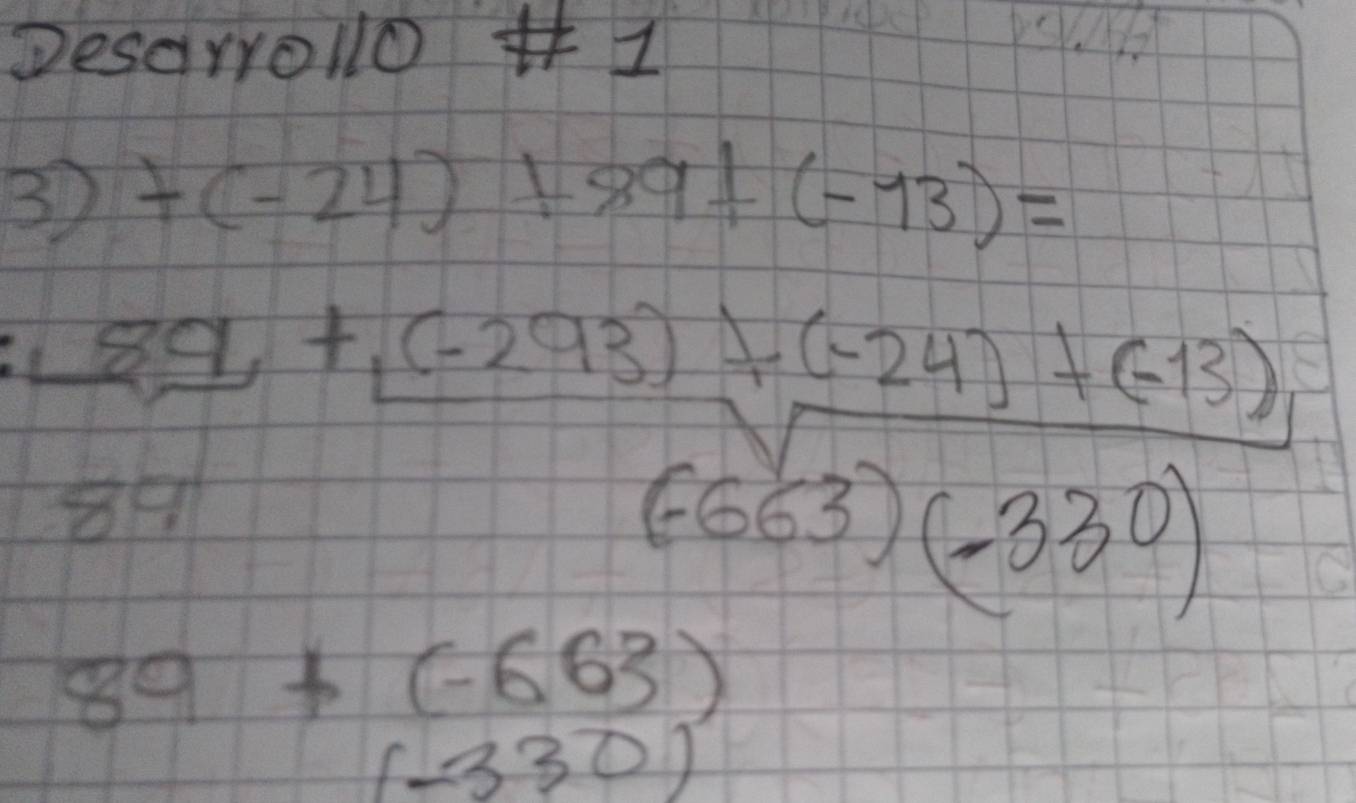 Desarrollo # 1
3) + (-24) + 89 + (-13) =
: 89 + (-293) + (-24) + (-13)
89 (-663) (-330)
89 + (-663)
(-330)